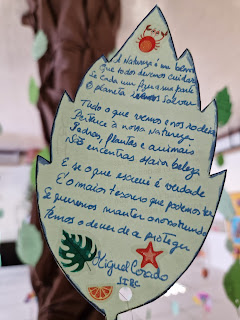 A Natureza é um bem
Que todos devemos cuidar
Se cada um fizer sua parte
O planeta iremos salvar
Tudo o que vemos e nos rodeia
Pertence à nossa Natureza
Pedras, plantas e animais
São encontras
beleza
E se o que escrevi é verdade
É o maior tesouro que podemos ter
Se queremos manter o nosso mundo
Temos o dever de a proteger
Miguel